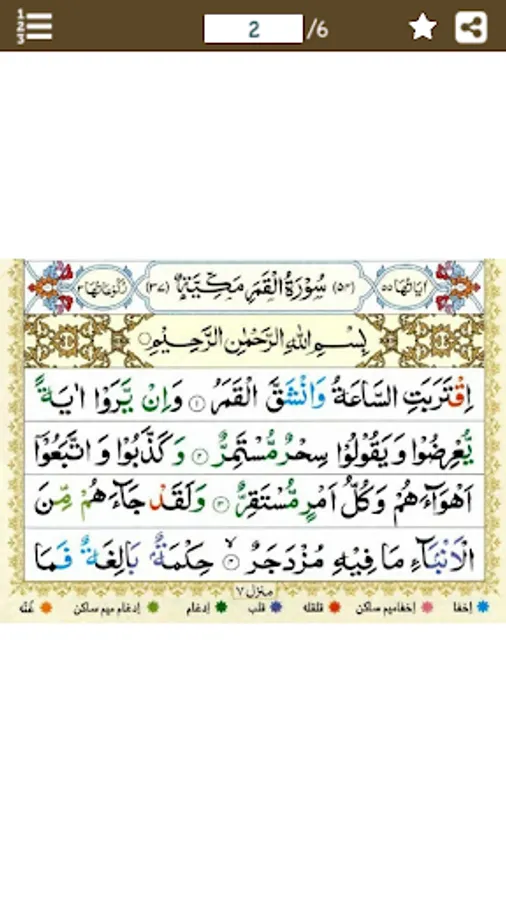 2/6
اٰيَاتُهَا ٥٥ (٥٤) سُوْرَةُ الْقَمَرِ مَكِّيَّةٌ (٣٧) رُكُوْعَاتُهَا ٣
بِسْمِ اللّٰهِ الرَّحْمٰنِ الرَّحِيْمِ
اِقْتَرَبَتِ السَّاعَةُ وَانْشَقَّ الْقَمَرُ ۝١ وَاِنْ يَّرَوْا اٰيَةً
يُّعْرِضُوْا وَيَقُوْلُوْا سِحْرٌ مُّسْتَمِرٌّ ۝٢ وَكَذَّبُوْا وَاتَّبَعُوْۤا
اَهْوَآءَهُمْ وَكُلُّ اَمْرٍ مُّسْتَقِرٌّ ۝٣ وَلَقَدْ جَآءَهُمْ مِّنَ
الْاَنْۢبَآءِ مَا فِيْهِ مُزْدَجَرٌ ۙ۝٤ حِكْمَةٌۢ بَالِغَةٌ فَمَا
منزل ٧
اخفا اخفامیم ساکن قلقله قلب ادغام ادغام میم ساکن غُنّه